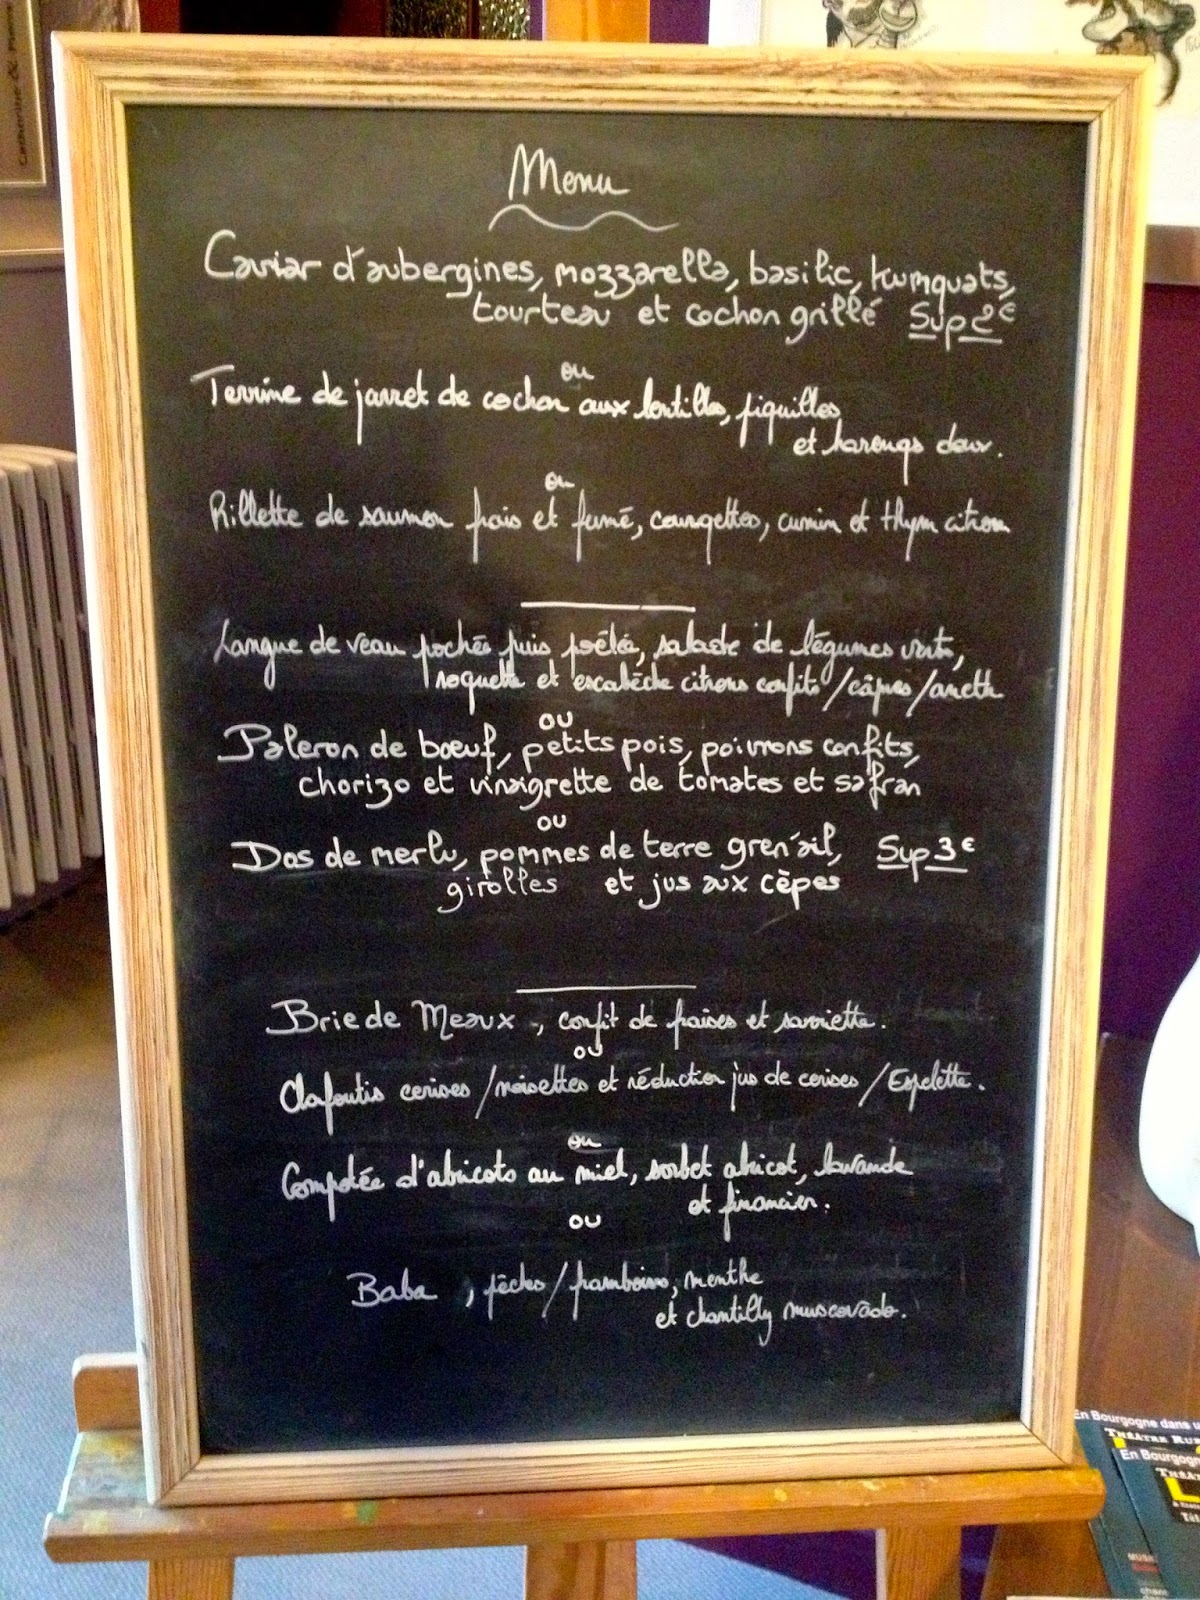 Menu
Caviar d'aubergines, mozzarella, basilic, kumquats,
tourteau et cochon grillé Sup 2€
ou
Terrine de jarret de cochon aux lentilles, piquillos
et harengs doux.
ou
Rillette de saumon frais et fumé, courgettes, cumin et thym citron
Langue de veau pochée puis poêlée, salade de légumes verts,
roquette et escabèche citrons confits/câpres/aneth
ou
Paleron de bœuf, petits pois, poivrons confits,
chorizo et vinaigrette de tomates et safran
ou
Dos de merlu, pommes de terre grenail, Sup 3€
girolles et jus aux cèpes
Brie de Meaux, confit de fraises et sarriette.
ou
Clafoutis cerises/noisettes et réduction jus de cerises/Espelette.
ou
Compotée d'abricots au miel, sorbet abricot, lavande
et financier.
ou
Baba, pêches/framboises, menthe
et chantilly muscovado.
En Bourgogne dans
THÉÂTRE
En Bourgogne